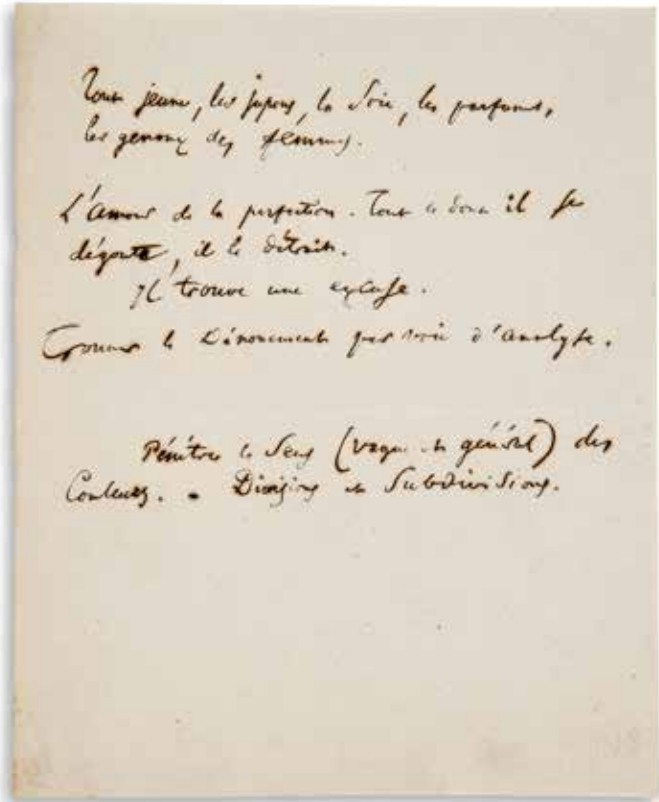 Tout jeune, les jupons, la soie, les parfums,
les genoux des femmes.
L'amour de la perfection. Tout ce dont il se
dégoute, il le détruit.
Il trouve une excuse.
Trouver le Dénouement par voie d'analyse.
Pénétrer le sens (vague et général) des
Couleurs. - Divisions et Subdivisions.